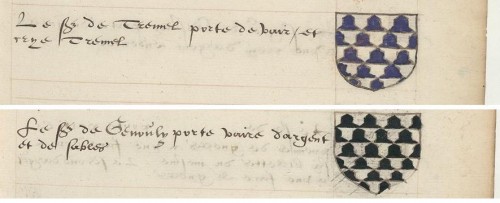 Le sr de Tremel porte de vair / et
crye Tremel
Le sr de Genoully porte vaire d'argent
et de sables